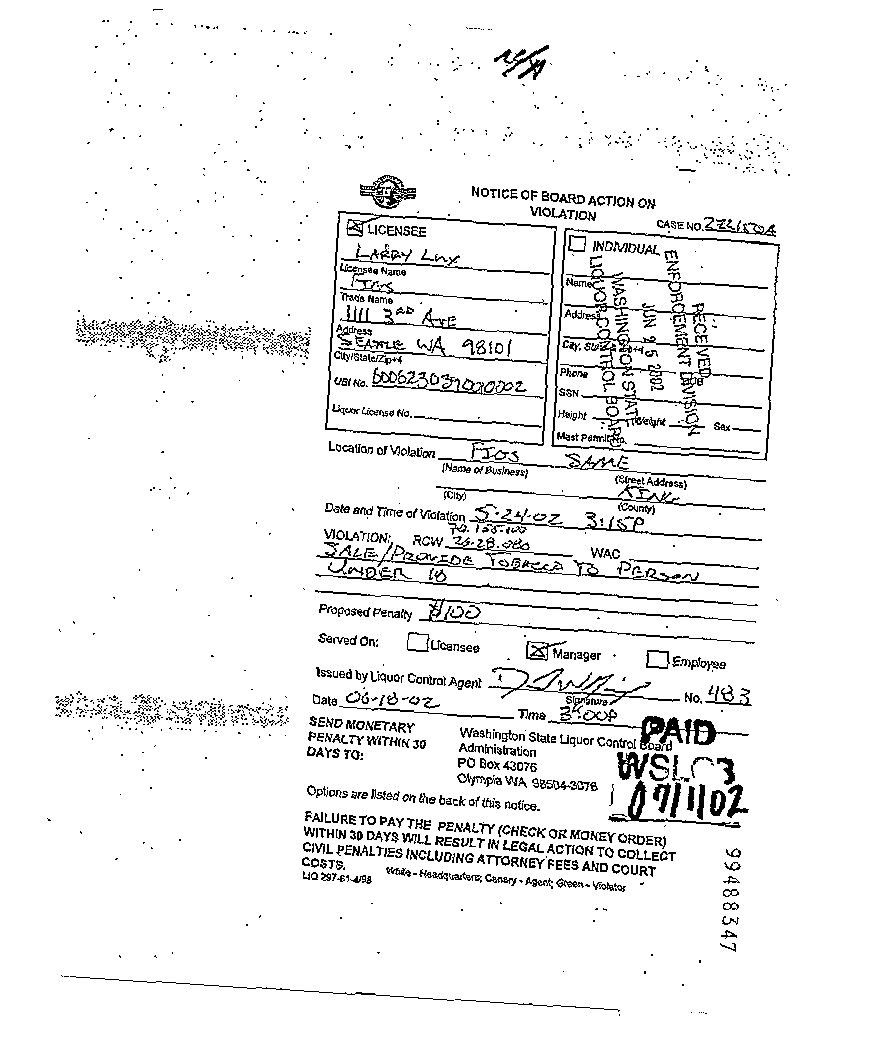 NOTICE OF BOARD ACTION ON
VIOLATION
CASE NO.
LICENSEE
LARRY LUX
Licensee Name
Trade Name
1111 3RD AVE
Address
SEATTLE WA 98101
City/State/Zip+4
UBI No.
Liquor License No.
INDIVIDUAL
Name
Address
City, State
Phone
SSN
Height Weight Sex
Mast Permit No.
RECEIVED
ENFORCEMENT DIVISION
JUN 25 2002
WASHINGTON STATE
LIQUOR CONTROL BOARD
Location of Violation SAME
(Name of Business) (Street Address)
KING
(City) (County)
Date and Time of Violation 5-24-02 3:15P
70.155.100
VIOLATION: RCW 26.28.080 WAC
SALE/PROVIDE TOBACCO TO PERSON
UNDER 18
Proposed Penalty $100
Served On: Licensee Manager Employee
Issued by Liquor Control Agent No. 483
Signature
Date 06-18-02 Time 3:00P
SEND MONETARY
PENALTY WITHIN 30
DAYS TO:
Washington State Liquor Control Board
Administration
PO Box 43076
Olympia WA 98504-3076
PAID
WSLCB
07/1/02
Options are listed on the back of this notice.
FAILURE TO PAY THE PENALTY (CHECK OR MONEY ORDER)
WITHIN 30 DAYS WILL RESULT IN LEGAL ACTION TO COLLECT
CIVIL PENALTIES INCLUDING ATTORNEY FEES AND COURT
COSTS.
LIQ 297-61-4/98 White - Headquarters; Canary - Agent; Green - Violator
99488347